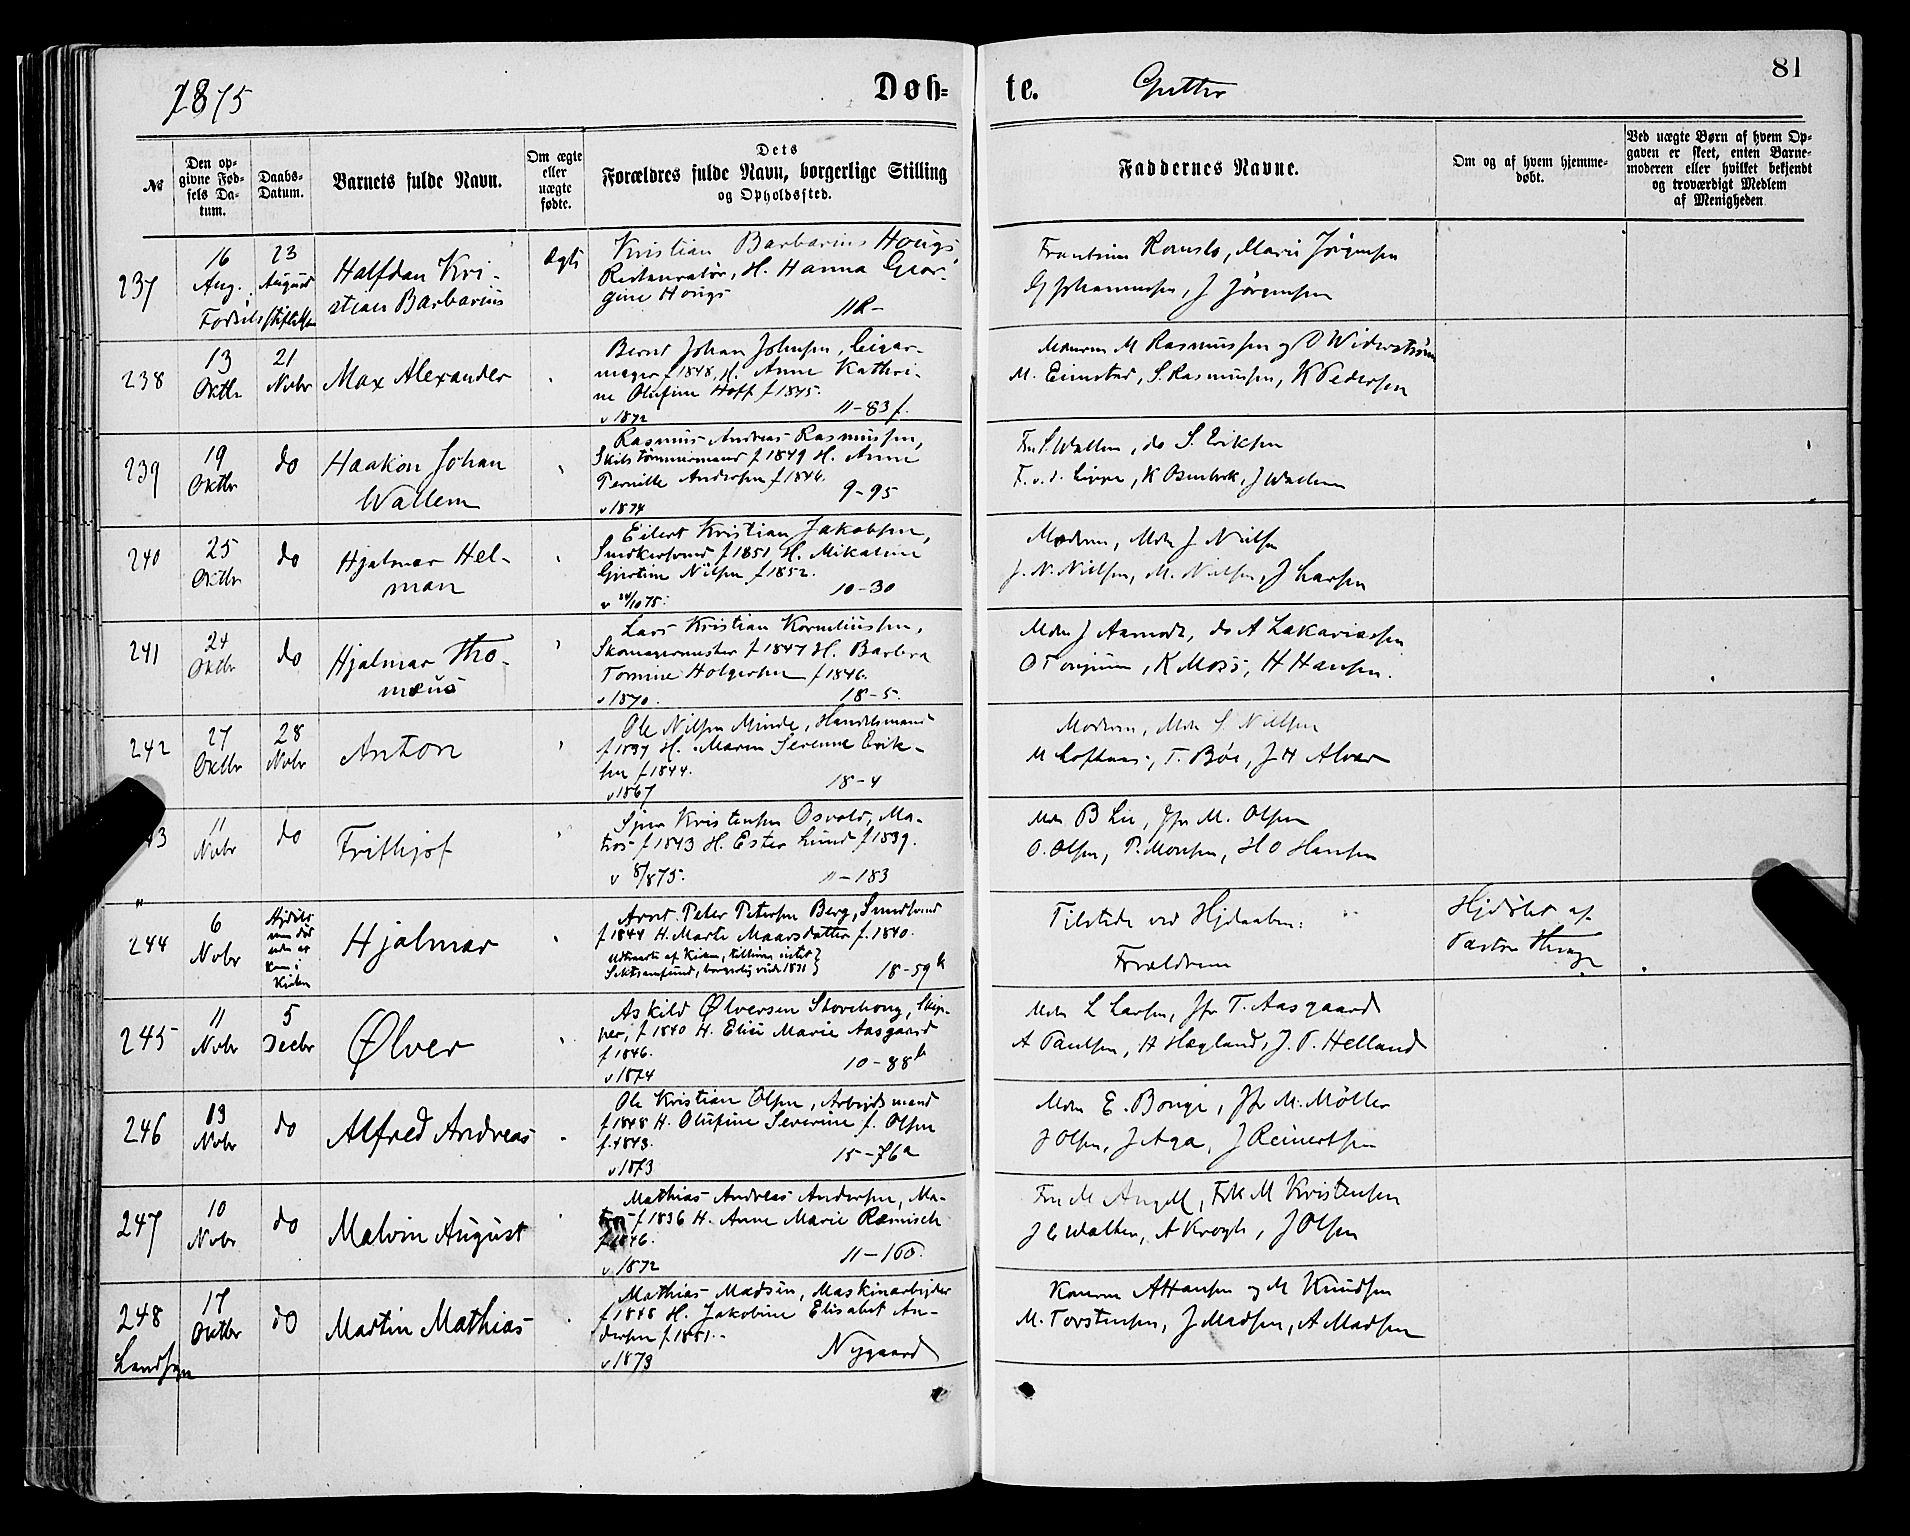 1875
Døb-
te.
Gutter
81
№
Den op-
givne Fød-
sels Da-
tum.
Daabs-
Datum.
Barnets fulde Navn.
Om ægte
eller
uægte
fødte.
Dets
Forældres fulde Navn, borgerlige Stilling
og Opholdssted.
Faddernes Navne.
Om og af hvem hjemme-
døbt.
Ved uægte Børn af hvem Op-
gaven er skeet, enten Barne-
moderen eller hvilket bekjendt
og troværdigt Medlem
af Menigheden
237
16
Aug.
23
August
Fødsels stiftelsen
Halfdan Kri-
stian Barbarius
Ægte
Kristian Barbarius Hougs
Restauratør, H. Hanna Geor-
gine Hougs
11R-
Romslo, Marie Jørgensen
G Johannesen, J Jørgensen
238
13
Oktbr
21
Novbr
Max Alexander
Bernt Johan Johnsen, Cigar-
mager f 1848, H. Anne Kathri-
ne Olufine Hoff f 1845.
v 1872
11-83 f.
M Rasmussen og O Widerstrøm
M. Eimstad, S. Rasmussen, K Pedersen
239
19
Oktbr
do
Haakon Johan
Wallem
Rasmus Andreas Rasmussen,
Skibstømmermand f 1849 H. Anne
Pernille Andersen f 1846.
v 1874
9-95
Fru S. Wallem, do S. Eriksen
F. v. d. Lippe, K Osmberk, J Wallem
240
25
Oktbr
do
Hjalmar Hel-
man
Eilert Kristian Jakobsen,
Snedkersvend f 1851 H. Mikaline
Gjertine Nilsen f 1852.
v 24/10 75.
10-30
Moderen, Mdm J Nielsen
J. N. Nielsen, M. Nielsen, J Larsen
241
24
Oktbr
do
Hjalmar Tho-
mæus
Lars Kristian Korneliussen,
Skomagermester f 1847 H. Barbra
Tomine Holgersen f 1846.
v 1870.
18-5.
Mdm J Aamodt, do A Zakariassen
O Tonjum, K Moss, H Hansen.
242
27
Oktbr
28
Novbr
Anton
Ole Nilsen Minde, Handelsmand
f 1837 H. Maren Serenne Erik-
sen f 1844.
v 1867
18-4
Moderen, Mdm S. Nielsen
M Lofthus, T. Bøe, J H Alver
43
11
Novbr
do
Frithjof
Sjur Kristensen Osvald, Ma-
tros f 1843 H. Ester Lund f 1839.
v 8/8 75.
11-183
Mdm B Lie, Jfr M. Olsen
O. Olsen, P. Monsen, H O Hansen
"
244
6
Novbr
Kirken
Hjalmar
Arnt Peter Petersen Berg, Smedsvend
f 1844 H. Marte Maarsdatter f. 1840.
Udtraadte af Kirken, tilhører intet
Sektsamfund, borgerlig viede 1871
18-59 b
Tilstede ved Hjdaaben:
Forældrene
Hjdøbt af
Pastor
245
11
Novbr
5
Decbr
Ølver
Askild Ølversen Storehoug, Skip-
per, f 1840 H. Elise Marie Aasgaard
f 1846.
v 1874
10-88 b
Mdm L Larsen, Jfr T. Aasgaard
A Paulsen, H Hægland, J. T. Helland
246
13
Novbr
do
Alfred Andreas
Ole Kristian Olsen, Arbejdsmand
f 1848 H. Olufine Severine f. Olsen
f. 1843.
v 1873
15-76a
Mdm E. Bonge, Jfr M. Møller
J Olsen, J Aga, J Reinertsen
247
10
Novbr
do
Malvin August
Mathias Andreas Andersen, Ma-
tros f 1836 H. Anne Marie Ræmisch
f 1846.
v 1872
11-160.
Fru M Angell, Frk M Kristensen
J C Walther, A Krogh, J Olsen
248
Landsogn
17
Oktbr
do
Martin Mathias
Mathias Madsen, Maskinarbejder
f 1848 H. Jakobine Elisabet An-
dersen f 1851.
v 1873
Nygaard
Konerne A Hansen og M Knudsen
M. Torstensen, J Madsen, A Madsen